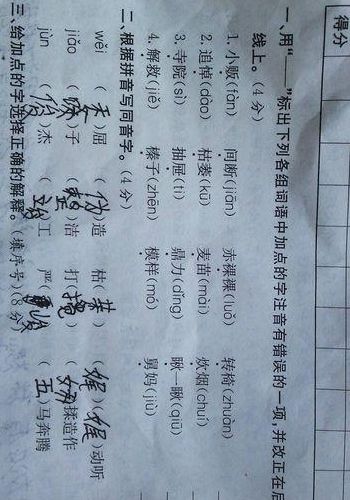 得分
一、用“——”标出下列各组词语中加点的字注音有错误的一项,并改正在后
线上。(4分)
1. 小贩(fàn) 间断(jiān) 赤裸裸(luǒ) 转椅(zhuàn)
2. 追悼(dào) 枯萎(kū) 麦苗(mài) 炊烟(chuī)
3. 寺院(sì) 抽屉(tì) 鼎力(dǐng) 瞅一瞅(qiū)
4. 解救(jiě) 榛子(zhēn) 模样(mó) 舅妈(jiù)
二、根据拼音写同音字。(4分)
wěi ( )屈 (伪)造 枯( ) (娓)(娓)动听
jiǎo ( )子 ( )洁 打(搅) ( )揉造作
jùn (俊)杰 (竣)工 严( ) ( )马奔腾
三、给加点的字选择正确的解释。(填序号)(8分)